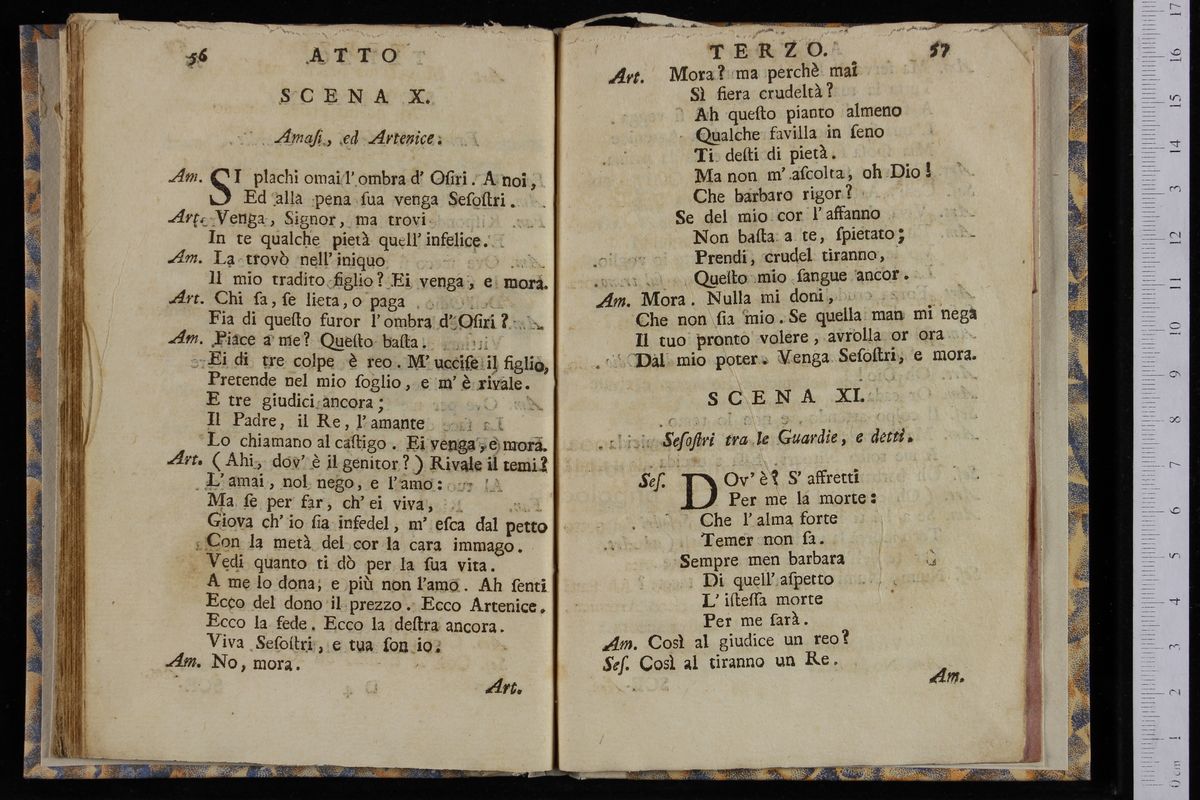 56 ATTO
SCENA X.
Amaſi, ed Artenice.
Am. SI plachi omai l'ombra d' Oſiri. A noi,
Ed alla pena ſua venga Seſoſtri.
Art. Venga, Signor, ma trovi
In te qualche pietà quell' infelice.
Am. La trovò nell' iniquo
Il mio tradito figlio? Ei venga, e mora.
Art. Chi ſa, ſe lieta, o paga
Fia di queſto furor l'ombra d' Oſiri?
Am. Piace a me? Queſto baſta.
Ei di tre colpe è reo. M' ucciſe il figlio,
Pretende nel mio ſoglio, e m' è rivale.
E tre giudici ancora;
Il Padre, il Re, l'amante
Lo chiamano al caſtigo. Ei venga, e mora.
Art. (Ahi, dov' è il genitor?) Rivale il temi?
L' amai, nol nego, e l'amo:
Ma ſe per far, ch' ei viva,
Giova ch' io ſia infedel, m' eſca dal petto
Con la metà del cor la cara immago.
Vedi quanto ti dò per la ſua vita.
A me lo dona, e più non l'amo. Ah ſenti
Ecco del dono il prezzo. Ecco Artenice.
Ecco la fede. Ecco la deſtra ancora.
Viva Seſoſtri, e tua ſon io.
Am. No, mora.
Art.
TERZO. 57
Art. Mora? ma perchè mai
Sì fiera crudeltà?
Ah queſto pianto almeno
Qualche favilla in ſeno
Ti deſti di pietà.
Ma non m' aſcolta, oh Dio!
Che barbaro rigor?
Se del mio cor l'affanno
Non baſta a te, ſpietato;
Prendi, crudel tiranno,
Queſto mio ſangue ancor.
Am. Mora. Nulla mi doni,
Che non ſia mio. Se quella man mi nega
Il tuo pronto volere, avrolla or ora
Dal mio poter. Venga Seſoſtri, e mora.
SCENA XI.
Seſoſtri tra le Guardie, e detti.
Seſ. DOv' è? S' affretti
Per me la morte:
Che l'alma forte
Temer non ſa.
Sempre men barbara
Di quell' aſpetto
L' iſteſſa morte
Per me ſarà.
Am. Così al giudice un reo?
Seſ. Così al tiranno un Re.
Am.
17
16
15
14
13
12
11
10
9
8
7
6
5
4
3
2
1
0 cm